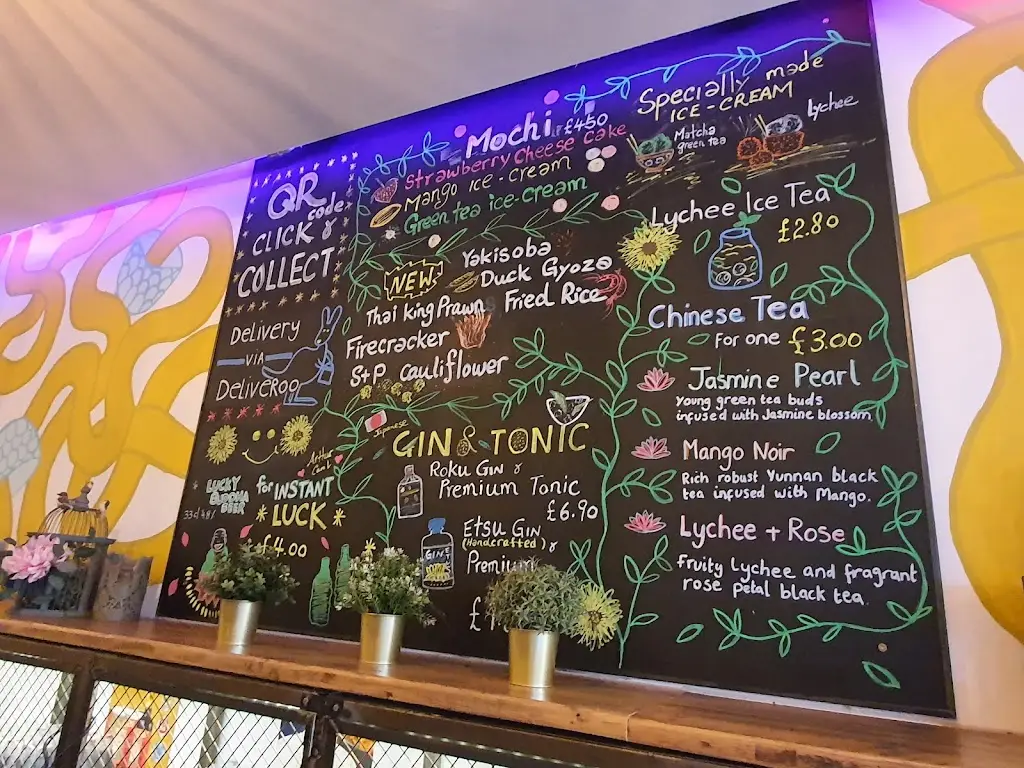 QR
code &
CLICK
COLLECT
DELIVERY
VIA
DELIVEROO
LUCKY
BUDDHA
BEER
for INSTANT
LUCK
£4.00
Mochi £450
Strawberry Cheese Cake
Mango ice-cream
Green tea ice-cream
NEW
Yakisoba
Duck Gyoza
Thai king Prawn Fried Rice
Firecracker
S+P cauliflower
Japanese
GIN & TONIC
Roku Gin &
Premium Tonic
£6.90
Etsu Gin
(Handcrafted) &
Premium
GIN
Specially made
ICE-CREAM
Matcha
green tea
Lychee
Lychee Ice Tea
£2.80
Chinese Tea
For one £3.00
Jasmine Pearl
Young green tea buds
infused with Jasmine blossom
Mango Noir
Rich robust Yunnan black
tea infused with Mango.
Lychee + Rose
Fruity Lychee and fragrant
rose petal black tea.